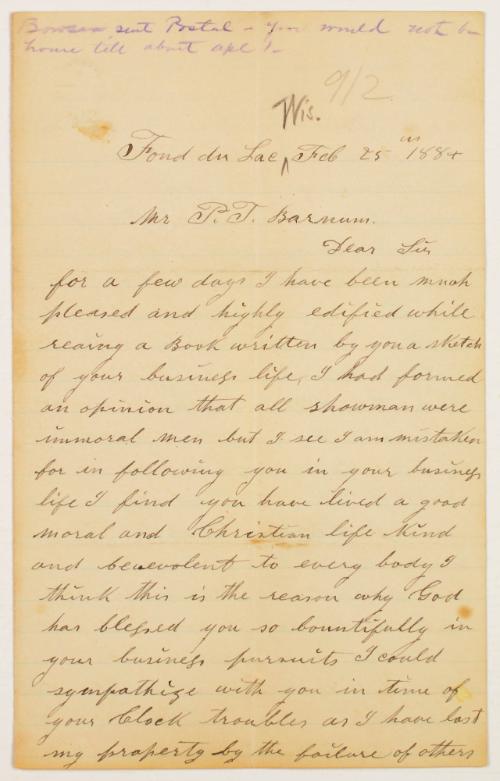 Bowser sent Postal - you would not be
home till about apl 1 -
9/2
Wis.
Fond du Lac, Feb 25 th 1884
Mr P. T. Barnum.
Dear Sir
for a few days I have been much
pleased and highly edified while
reaing a Book written by you a sketch
of your business life, I had formed
an opinion that all showman were
immoral men but I see I am mistaken
for in following you in your business
life I find you have lived a good
moral and Christian life kind
and benevolent to every body I
think this is the reason why God
has blessed you so bountifully in
your business pursuits I could
sympathize with you in time of
your Clock troubles as I have lost
my property by the failure of others